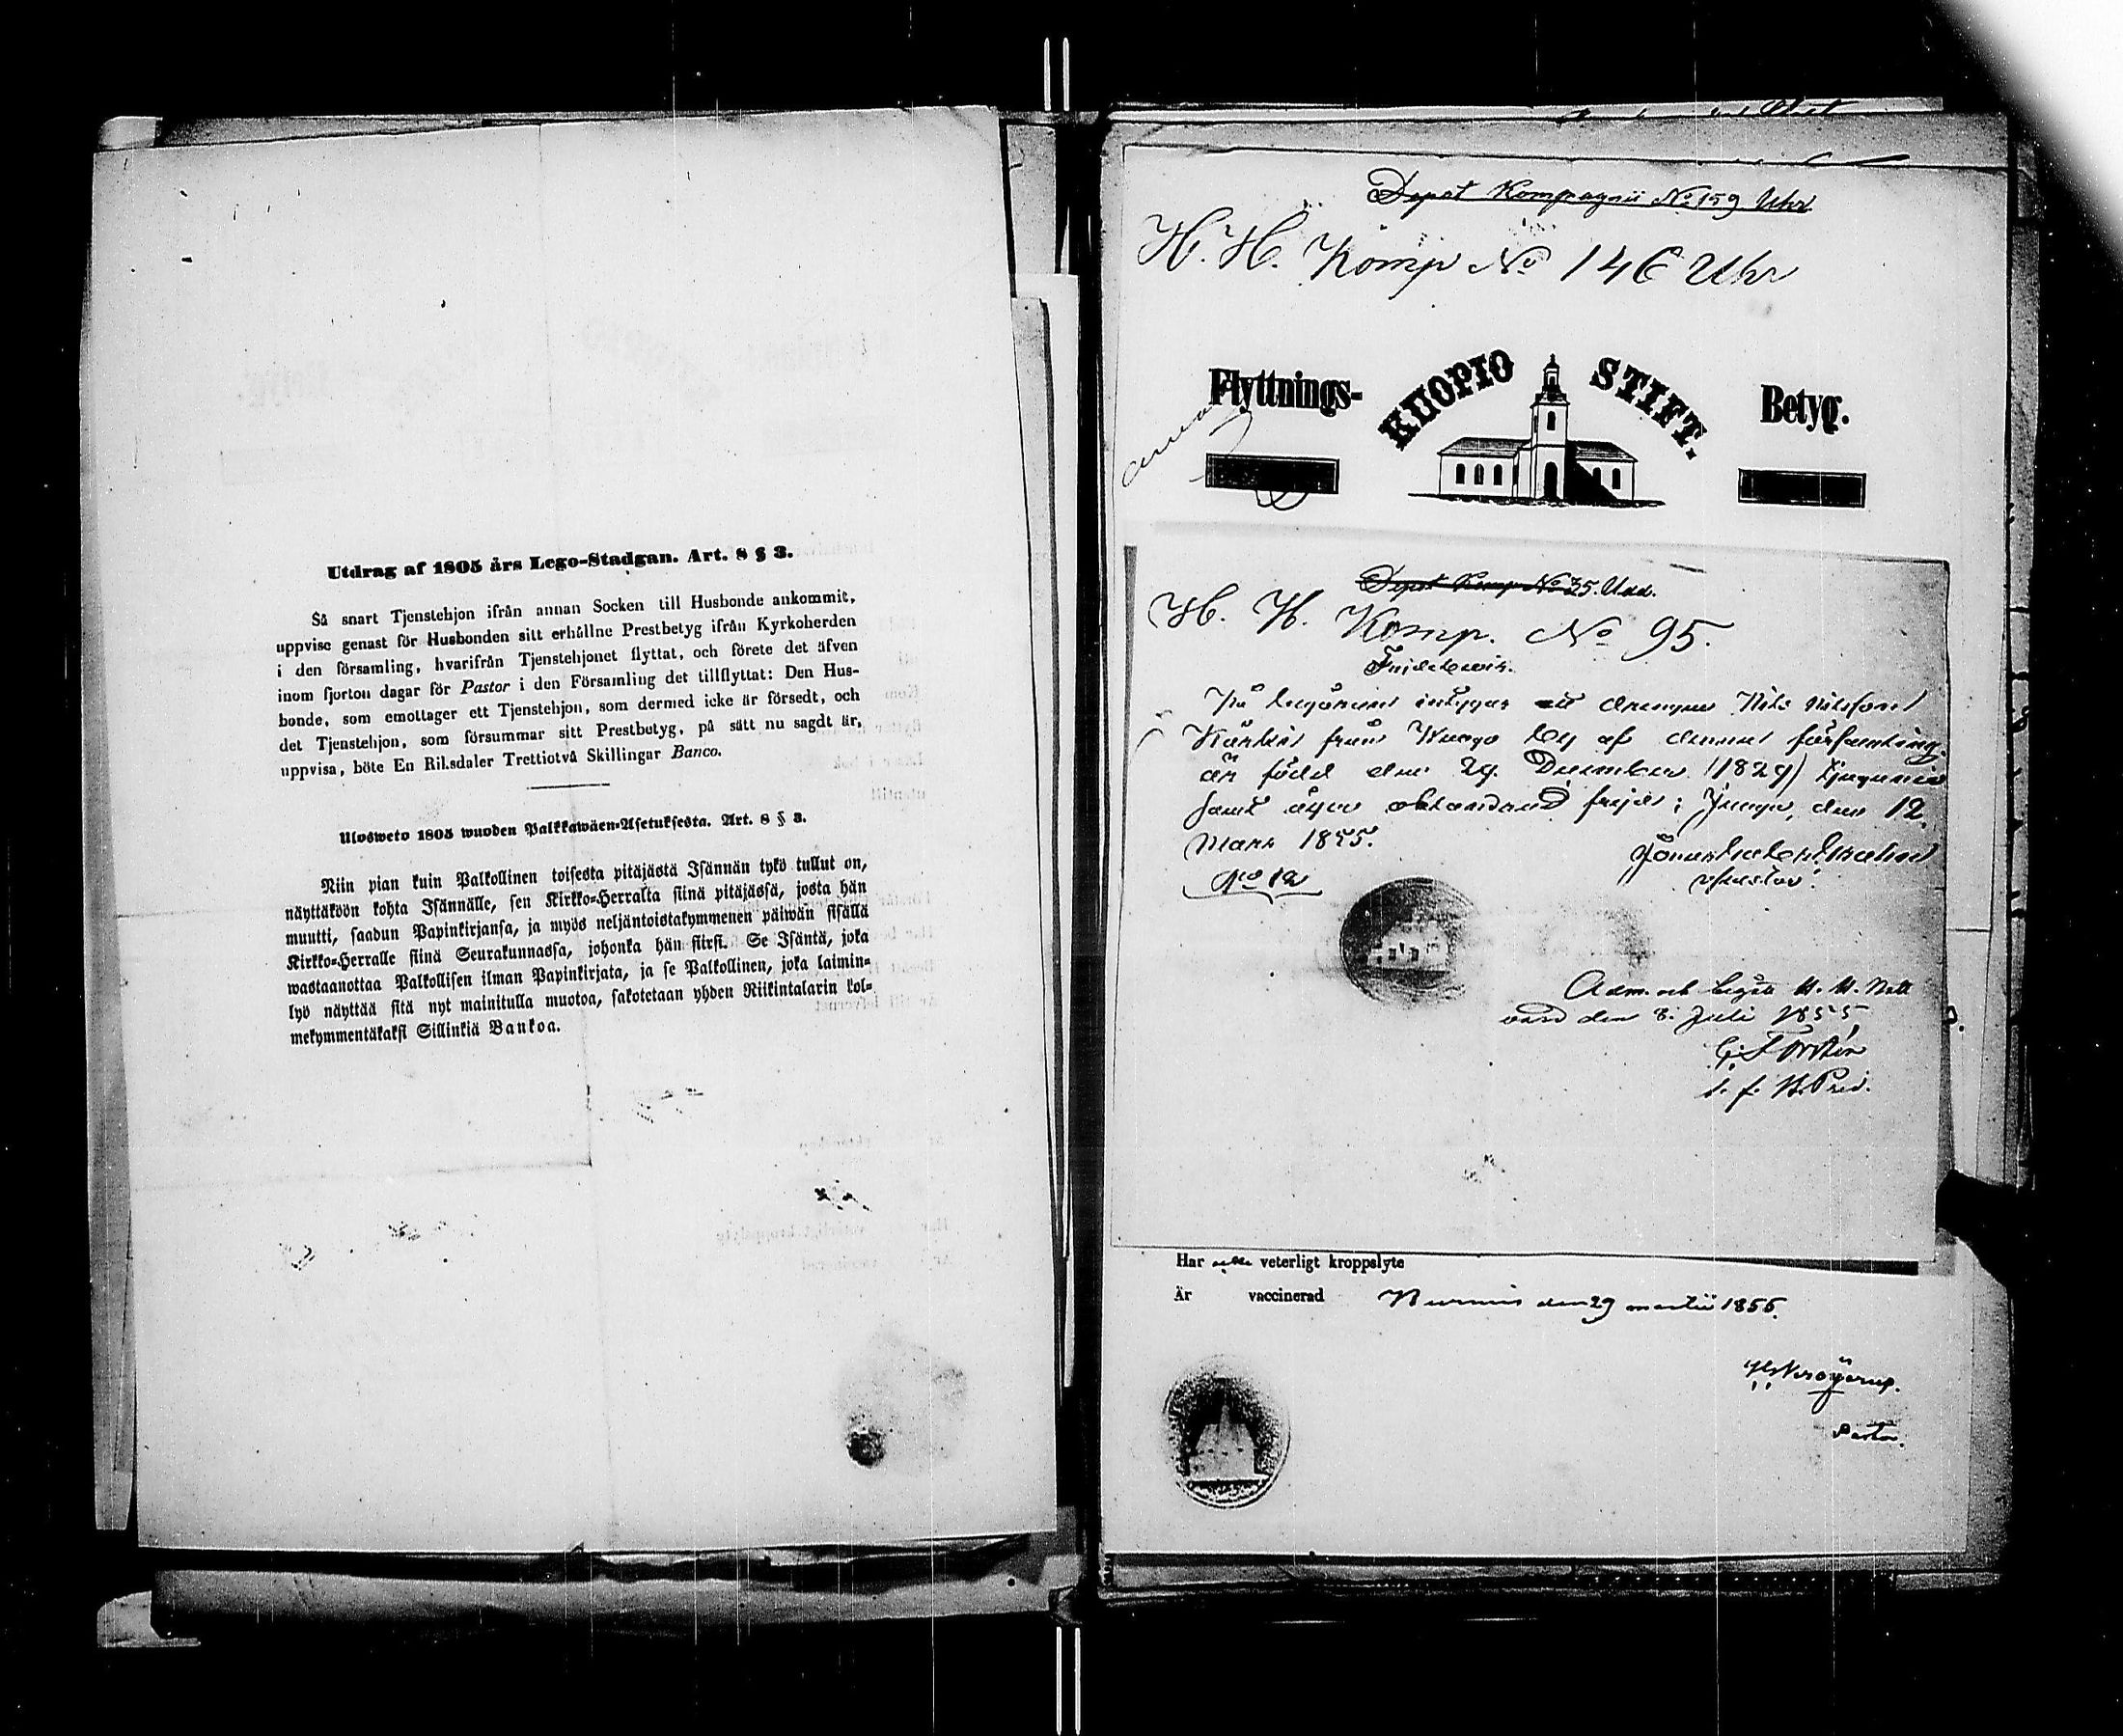 Utdrag af 1805 års Lego-Stadgan. Art. 8 § 3.
Så snart Tjenstehjon ifrån annan Socken till Husbonde ankommit,
uppvise genast för Husbonden sitt erhållne Prestbetyg ifrån Kyrkoherden
i den församling, hvarifrån Tjenstehjonet flyttat, och förete det äfven
inom fjorton dagar för Pastor i den Församling det tillflyttat: Den Hus-
bonde, som emottager ett Tjenstehjon, som dermed icke är försedt, och
det Tjenstehjon, som försummar sitt Prestbetyg, på sätt nu sagdt är,
uppvisa, böte En Riksdaler Trettiotvå Skillingar Banco.
Ulosweto 1805 wuoden Palkkawäen-Asetuksesta. Art. 8 § 3.
Niin pian kuin Palkollinen toisesta pitäjästä Isännän tykö tullut on,
näyttäköön kohta Isännälle, sen Kirkko-Herralta siinä pitäjässä, josta hän
muutti, saadun Papinkirjansa, ja myös neljäntoistakymmenen päiwän sisällä
Kirkko-Herralle siinä Seurakunnassa, johonka hän siirsi. Se Isäntä, joka
wastaanottaa Palkollisen ilman Papinkirjata, ja se Palkollinen, joka laimin-
lyö näyttää sitä nyt mainitulla muotoa, sakotetaan yhden Riikintalarin kol-
mekymmentäkaksi Sillinkiä Bankoa.
Depot Kompagnii No 159 Uhr
H. H. Komp No 146 Uhr
Flyttnings- KUOPIO STIFT. Betyg.
Depot Komp No 35.
H. H. Komp. No 95.
Fridsbevis.
På begäran intygas att drengen Nils Nilsson
från by af denna församling,
är född den 29 December (1829) tjugunio
samt äger obehindrad den 12
Mars 1855.
No 12
Pastor.
Adm. och begått H. H. Natt
vard den 8. Juli 1855
G. Forstén
t. f. B. Pred.
Har veterligt kroppslyte
Är vaccinerad Nurmis den 29 martii 1855.
Pastor.